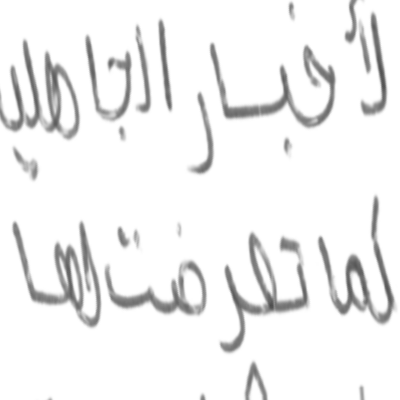 لأخبار الجاهليـ
كما تعرضت لها